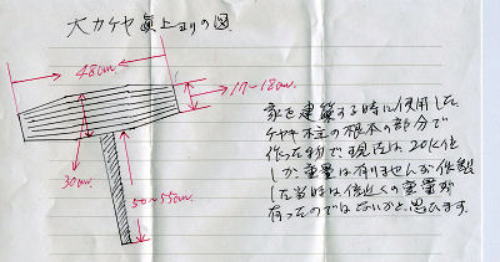 大カケヤ真上よりの図
48cm.
17〜18cm.
30cm.
50〜55cm.
家を建築する時に使用した
ケヤキ柱の根本の部分で
作った物で、現在は20K位
しか重量は有りませんが作製
した当時は倍近くの重量が
有ったのではないかと、思ひます.